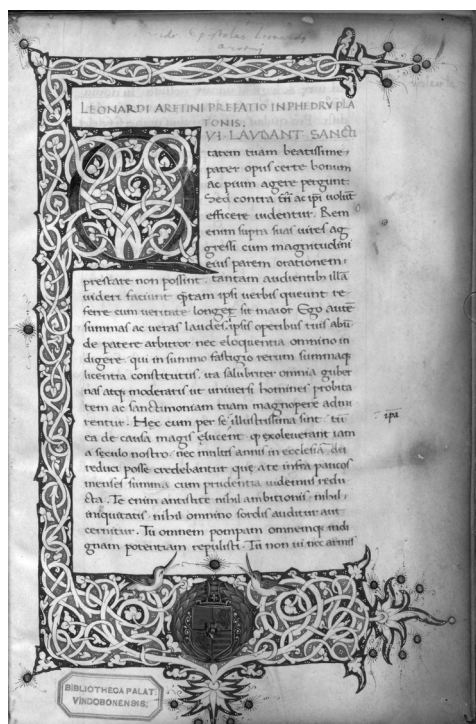 LEONARDI ARETINI PREFATIO IN PHEDRV̅ PLA
TONIS;
VI LAVDANT SANCTI
tatem tuam beatissime,
pater opus certe bonum
ac pium agere pergunt:
Sed contra tn̄ ac ip̄i volūt
efficere videntur. Rem
enim supra suas vires ag
gressi cum magnitudini
eius parem orationem,
prestare non possint, tantam audientib; illā
videri faciunt q̄tam ipsi verbis queunt re
ferre cum veritate longeq; sit maior. Ego autē
summas ac veras laudes, ipsis operibus tuis abū
de patere arbitror nec eloquentia omnino in
digere, qui in summo fastigio rerum summaq;
licentia constitutus, ita salubriter omnia guber
nas atq; moderaris ut universi homines probita
tem ac sanctimoniam tuam magnopere admi
rentur. Hęc cum per se, illustrissima sint, tū
ea de causa magis elucent, q̄ exoleverant iam
a seculo nostro, nec multis annis in ecclesiā dei
reduci posse credebantur quę a te infra paucos
menses summa cum prudentia videmus redu
cta. Te enim antistite nihil ambitionis, nihil,
iniquitatis, nihil omnino sordis auditur aut
cernitur. Tu omnem pompam omnemq; indi
gnam potentiam repulisti. Tu non vi nec armis
ip̄a
BIBLIOTHECA PALAT.
VINDOBONENSIS;